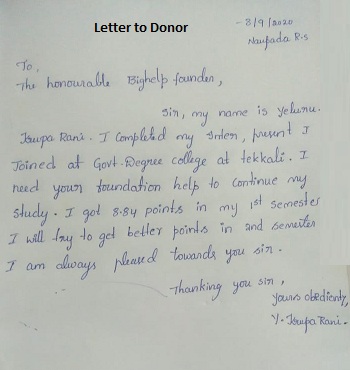 Letter to Donor
- 3/9/2020
Naupada R.S
To,
The honourable Bighelp founder,
Sir, my name is Yeluru.
Irupa Rani. I Completed my Inter, present I
Joined at Govt. Degree college at tekkali. I
need your foundation help to continue my
study. I got 8.84 points in my 1st semester
I will try to get better points in 2nd semester
I am always pleased towards you sir.
Thanking you sir,
yours obediently,
Y. Irupa Rani.